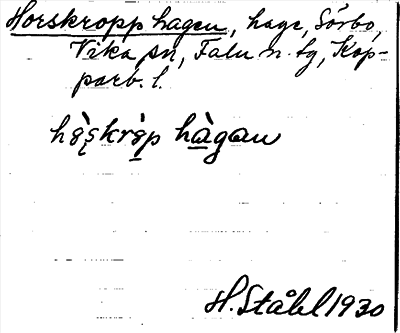 Horskropphagen, hage, Sörbo,
Vika sn, Falu n. fg, Kop-
parb. l.
hö̀skrö̀p hàgan
H. Ståhl 1930